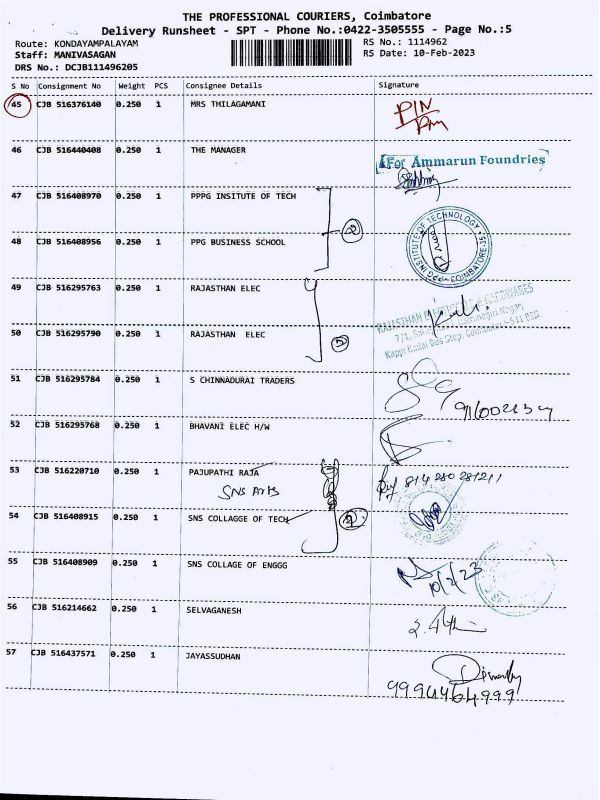 THE PROFESSIONAL COURIERS, Coimbatore
Delivery Runsheet - SPT - Phone No.:0422-3505555 - Page No.:5
Route: KONDAYAMPALAYAM RS No.: 1114962
Staff: MANIVASAGAN RS Date: 10-Feb-2023
DRS No.: DCJB111496205
S No Consignment No Weight PCS Consignee Details Signature
45 CJB 516376140 0.250 1 MRS THILAGAMANI
PIN
46 CJB 516440408 0.250 1 THE MANAGER
For Ammarun Foundries
47 CJB 516408970 0.250 1 PPPG INSITUTE OF TECH
48 CJB 516408956 0.250 1 PPG BUSINESS SCHOOL
PPG INSTITUTE OF TECHNOLOGY COIMBATORE-35
49 CJB 516295763 0.250 1 RAJASTHAN ELEC
RAJASTHAN
50 CJB 516295790 0.250 1 RAJASTHAN ELEC
51 CJB 516295784 0.250 1 S CHINNADURAI TRADERS
52 CJB 516295768 0.250 1 BHAVANI ELEC H/W
53 CJB 516220710 0.250 1 PAJUPATHI RAJA
SNS Arts
54 CJB 516408915 0.250 1 SNS COLLAGGE OF TECH
55 CJB 516408909 0.250 1 SNS COLLAGE OF ENGGG
10/2/23
56 CJB 516214662 0.250 1 SELVAGANESH
57 CJB 516437571 0.250 1 JAYASSUDHAN
9994464999